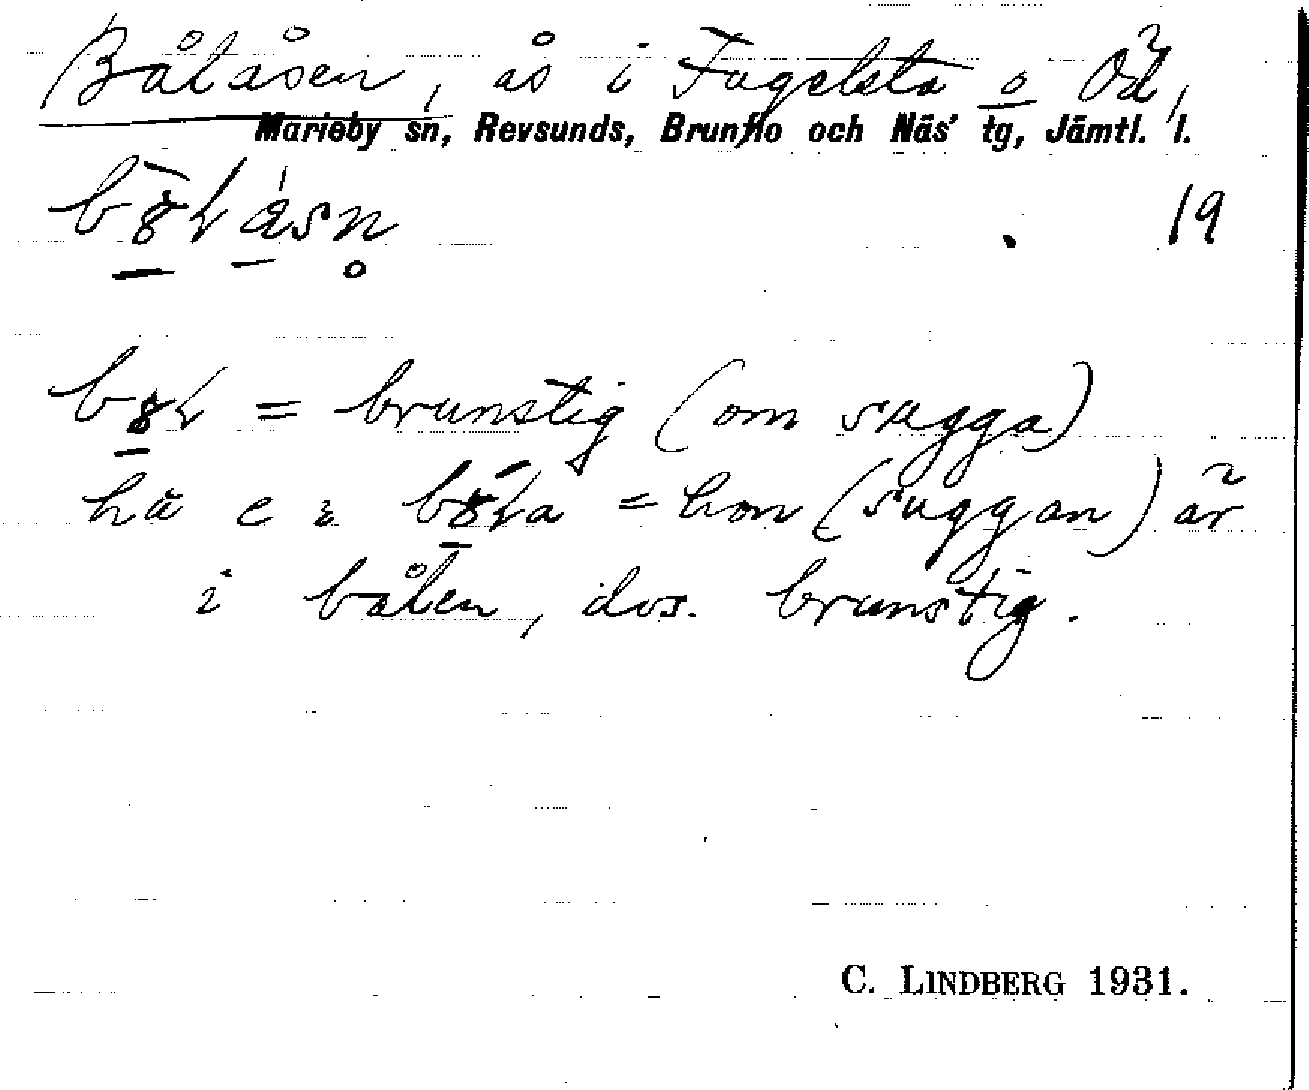 Bålåsen, ås i Fugelsta o Öd,
Marieby sn, Revsunds, Brunflo och Näs' tg, Jämtl. l.
19
= brunstig (om sugga)
= hon (suggan) är
i bålen, dvs. brunstig.
C. LINDBERG 1931.